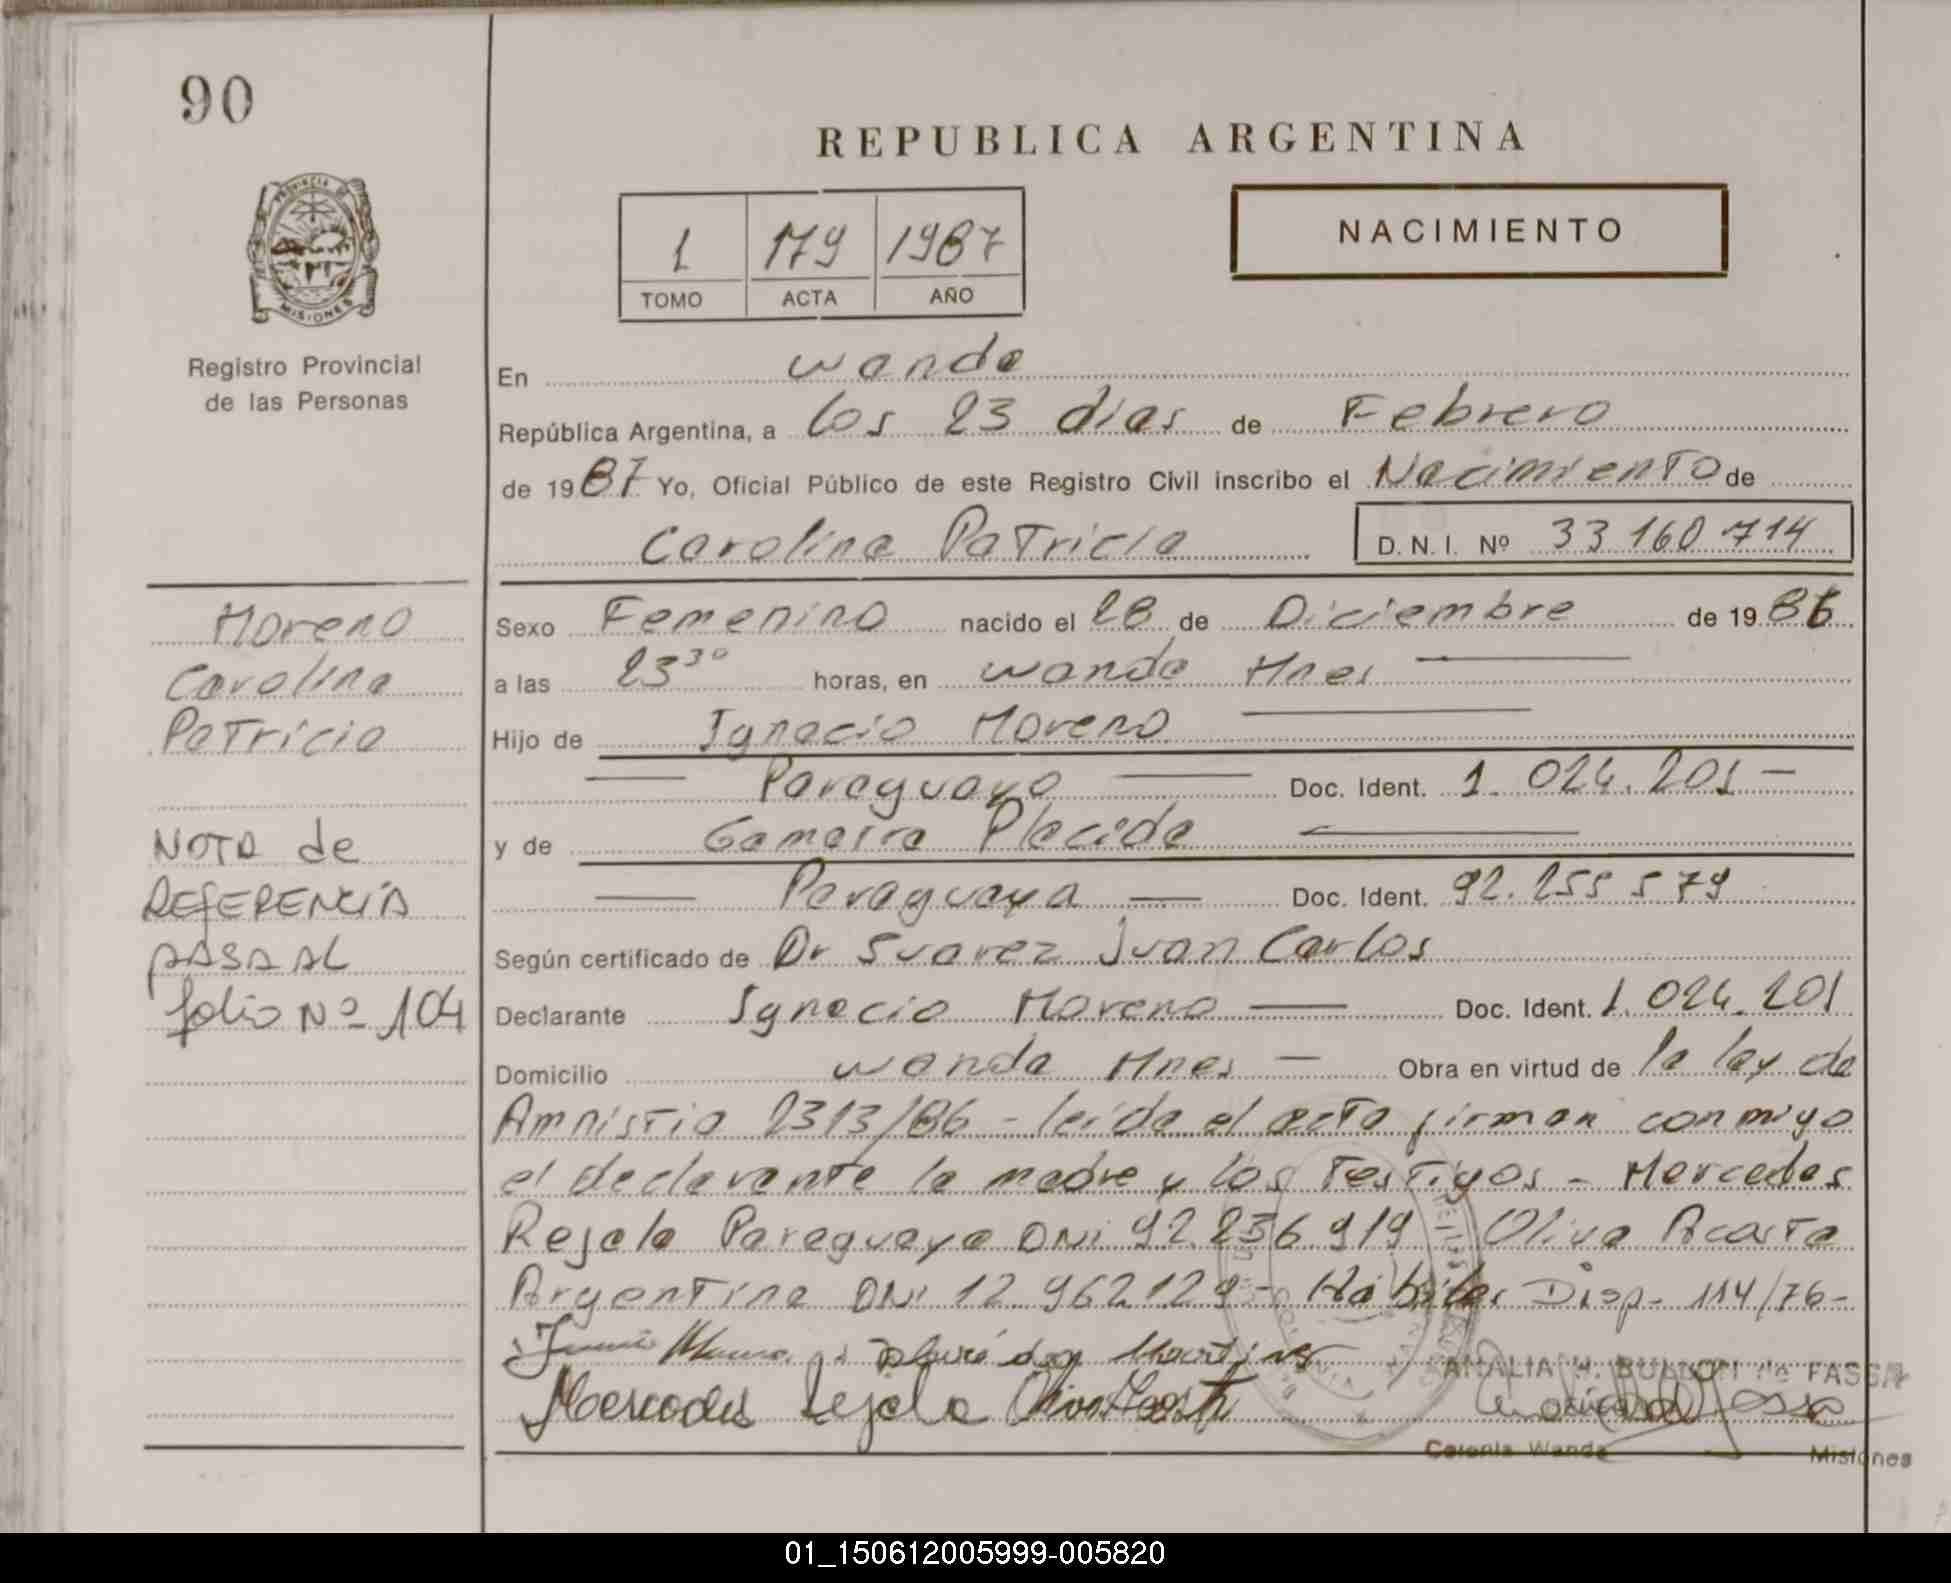 90
REPUBLICA ARGENTINA
PROVINCIA DE
MISIONES
Registro Provincial
de las Personas
1 179 1987
TOMO ACTA AÑO
NACIMIENTO
En Wanda
República Argentina, a los 23 días de Febrero
de 1987 Yo, Oficial Público de este Registro Civil inscribo el Nacimiento de
Carolina Patricia D.N.I. Nº 33 160 714
Moreno
Carolina
Patricia
NOTA de
REFERENCIA
PASA AL
folio Nº 104
Sexo Femenino nacido el 28 de Diciembre de 1986
a las 23 30 horas, en Wanda Mnes
Hijo de Ignacio Moreno
Paraguayo Doc. Ident. 1.024.201
y de Gamarra Placida
Paraguaya Doc. Ident. 92.255 579
Según certificado de Dr Suarez Juan Carlos
Declarante Ignacio Moreno Doc. Ident. 1.024.201
Domicilio Wanda Mnes - Obra en virtud de la ley de
Amnistia 2313/86 - leida el acta firman conmigo
el declarante la madre y los Testigos - Mercedes
Rejala Paraguaya DNi 92.236 919 Oliva Acosta
Argentina DNi 12 962 129 - Habiles Disp. 114/76 -
Mercedes Rejala Oliva Acosta
AMALIA de FASSA
Colonia Wanda Misiones
01_150612005999-005820